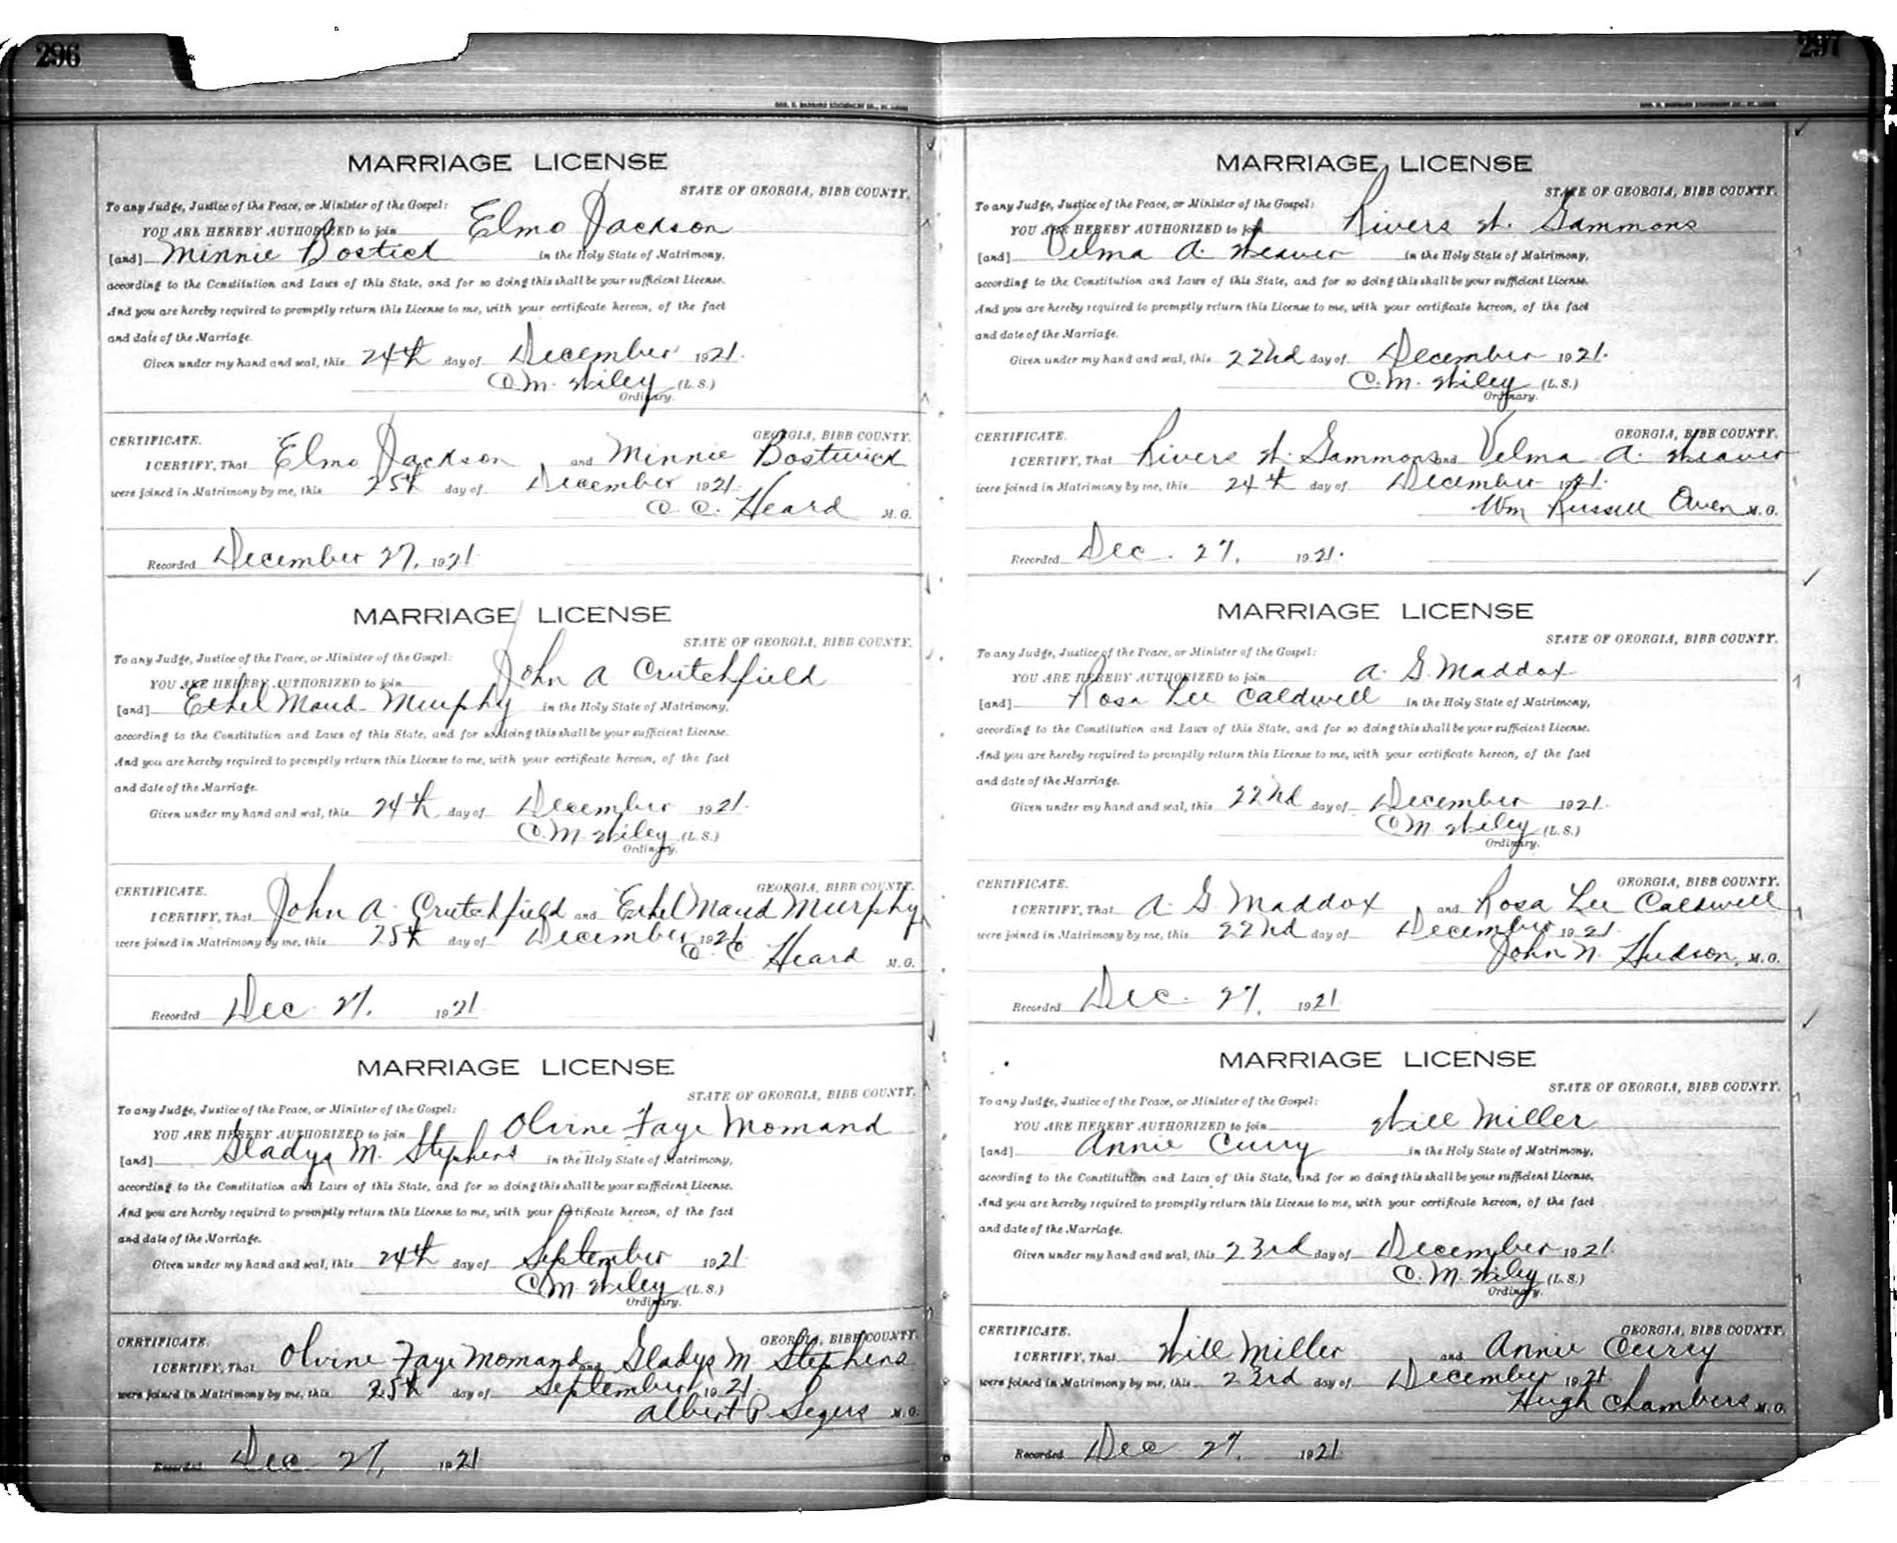 296
MARRIAGE LICENSE
STATE OF GEORGIA, BIBB COUNTY.
To any Judge, Justice of the Peace, or Minister of the Gospel:
YOU ARE HEREBY AUTHORIZED to join Elmo Jackson
[and] Minnie Bostick in the Holy State of Matrimony,
according to the Constitution and Laws of this State, and for so doing this shall be your sufficient License.
And you are hereby required to promptly return this License to me, with your certificate hereon, of the fact
and date of the Marriage.
Given under my hand and seal, this 24th day of December 1921.
C. M. Wiley (L. S.)
Ordinary.
CERTIFICATE. GEORGIA, BIBB COUNTY.
I CERTIFY, That Elmo Jackson and Minnie Bostwick
were joined in Matrimony by me, this 25th day of December 1921.
C. C. Heard M. G.
Recorded December 27, 1921
MARRIAGE LICENSE
STATE OF GEORGIA, BIBB COUNTY.
To any Judge, Justice of the Peace, or Minister of the Gospel:
YOU ARE HEREBY AUTHORIZED to join John A Crutchfield
[and] Ethel Maud Murphy in the Holy State of Matrimony,
according to the Constitution and Laws of this State, and for so doing this shall be your sufficient License.
And you are hereby required to promptly return this License to me, with your certificate hereon, of the fact
and date of the Marriage.
Given under my hand and seal, this 24th day of December 1921.
C. M. Wiley (L. S.)
Ordinary.
CERTIFICATE. GEORGIA, BIBB COUNTY.
I CERTIFY, That John A. Crutchfield and Ethel Maud Murphy
were joined in Matrimony by me, this 25th day of December 1921.
E. C. Heard M. G.
Recorded Dec. 27, 1921
MARRIAGE LICENSE
STATE OF GEORGIA, BIBB COUNTY.
To any Judge, Justice of the Peace, or Minister of the Gospel:
YOU ARE HEREBY AUTHORIZED to join Olvine Faye Momand
[and] Gladys M. Stephens in the Holy State of Matrimony,
according to the Constitution and Laws of this State, and for so doing this shall be your sufficient License.
And you are hereby required to promptly return this License to me, with your certificate hereon, of the fact
and date of the Marriage.
Given under my hand and seal, this 24th day of September 1921
C. M. Wiley (L. S.)
Ordinary.
CERTIFICATE. GEORGIA, BIBB COUNTY.
I CERTIFY, That Olvine Faye Momand and Gladys M Stephens
were joined in Matrimony by me, this 25th day of September 1921.
Albert P. Segers M. G.
Recorded Dec. 27, 1921
297
MARRIAGE LICENSE
STATE OF GEORGIA, BIBB COUNTY.
To any Judge, Justice of the Peace, or Minister of the Gospel:
YOU ARE HEREBY AUTHORIZED to join Rivers W. Sammons
[and] Velma A. Weaver in the Holy State of Matrimony,
according to the Constitution and Laws of this State, and for so doing this shall be your sufficient License.
And you are hereby required to promptly return this License to me, with your certificate hereon, of the fact
and date of the Marriage.
Given under my hand and seal, this 22nd day of December 1921.
C. M. Wiley (L. S.)
Ordinary.
CERTIFICATE. GEORGIA, BIBB COUNTY.
I CERTIFY, That Rivers W. Sammons and Velma A. Weaver
were joined in Matrimony by me, this 24th day of December 1921.
Wm Russell Owen M. G.
Recorded Dec. 27, 1921.
MARRIAGE LICENSE
STATE OF GEORGIA, BIBB COUNTY.
To any Judge, Justice of the Peace, or Minister of the Gospel:
YOU ARE HEREBY AUTHORIZED to join A. G. Maddox
[and] Rosa Lee Caldwell in the Holy State of Matrimony,
according to the Constitution and Laws of this State, and for so doing this shall be your sufficient License.
And you are hereby required to promptly return this License to me, with your certificate hereon, of the fact
and date of the Marriage.
Given under my hand and seal, this 22nd day of December 1921.
C. M. Wiley (L. S.)
Ordinary.
CERTIFICATE. GEORGIA, BIBB COUNTY.
I CERTIFY, That A. G. Maddox and Rosa Lee Caldwell
were joined in Matrimony by me, this 22nd day of December 1921.
John N. Hudson, M. G.
Recorded Dec. 27, 1921
MARRIAGE LICENSE
STATE OF GEORGIA, BIBB COUNTY.
To any Judge, Justice of the Peace, or Minister of the Gospel:
YOU ARE HEREBY AUTHORIZED to join Will Miller
[and] Annie Curry in the Holy State of Matrimony,
according to the Constitution and Laws of this State, and for so doing this shall be your sufficient License.
And you are hereby required to promptly return this License to me, with your certificate hereon, of the fact
and date of the Marriage.
Given under my hand and seal, this 23rd day of December 1921.
C. M. Wiley (L. S.)
Ordinary.
CERTIFICATE. GEORGIA, BIBB COUNTY.
I CERTIFY, That Will Miller and Annie Curry
were joined in Matrimony by me, this 23rd day of December 1921.
Hugh Chambers M. G.
Recorded Dec 27, 1921